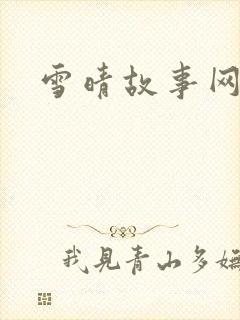 雪晴故事网
我见青山多嫵